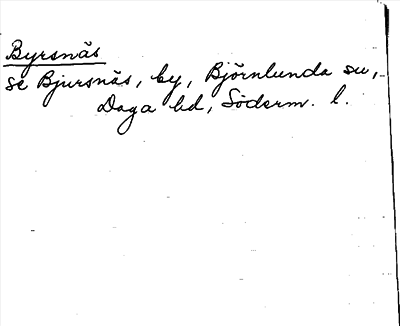 Byrsnäs
se Bjursnäs, by, Björnlunda sn,
Daga hd, Söderm. l.